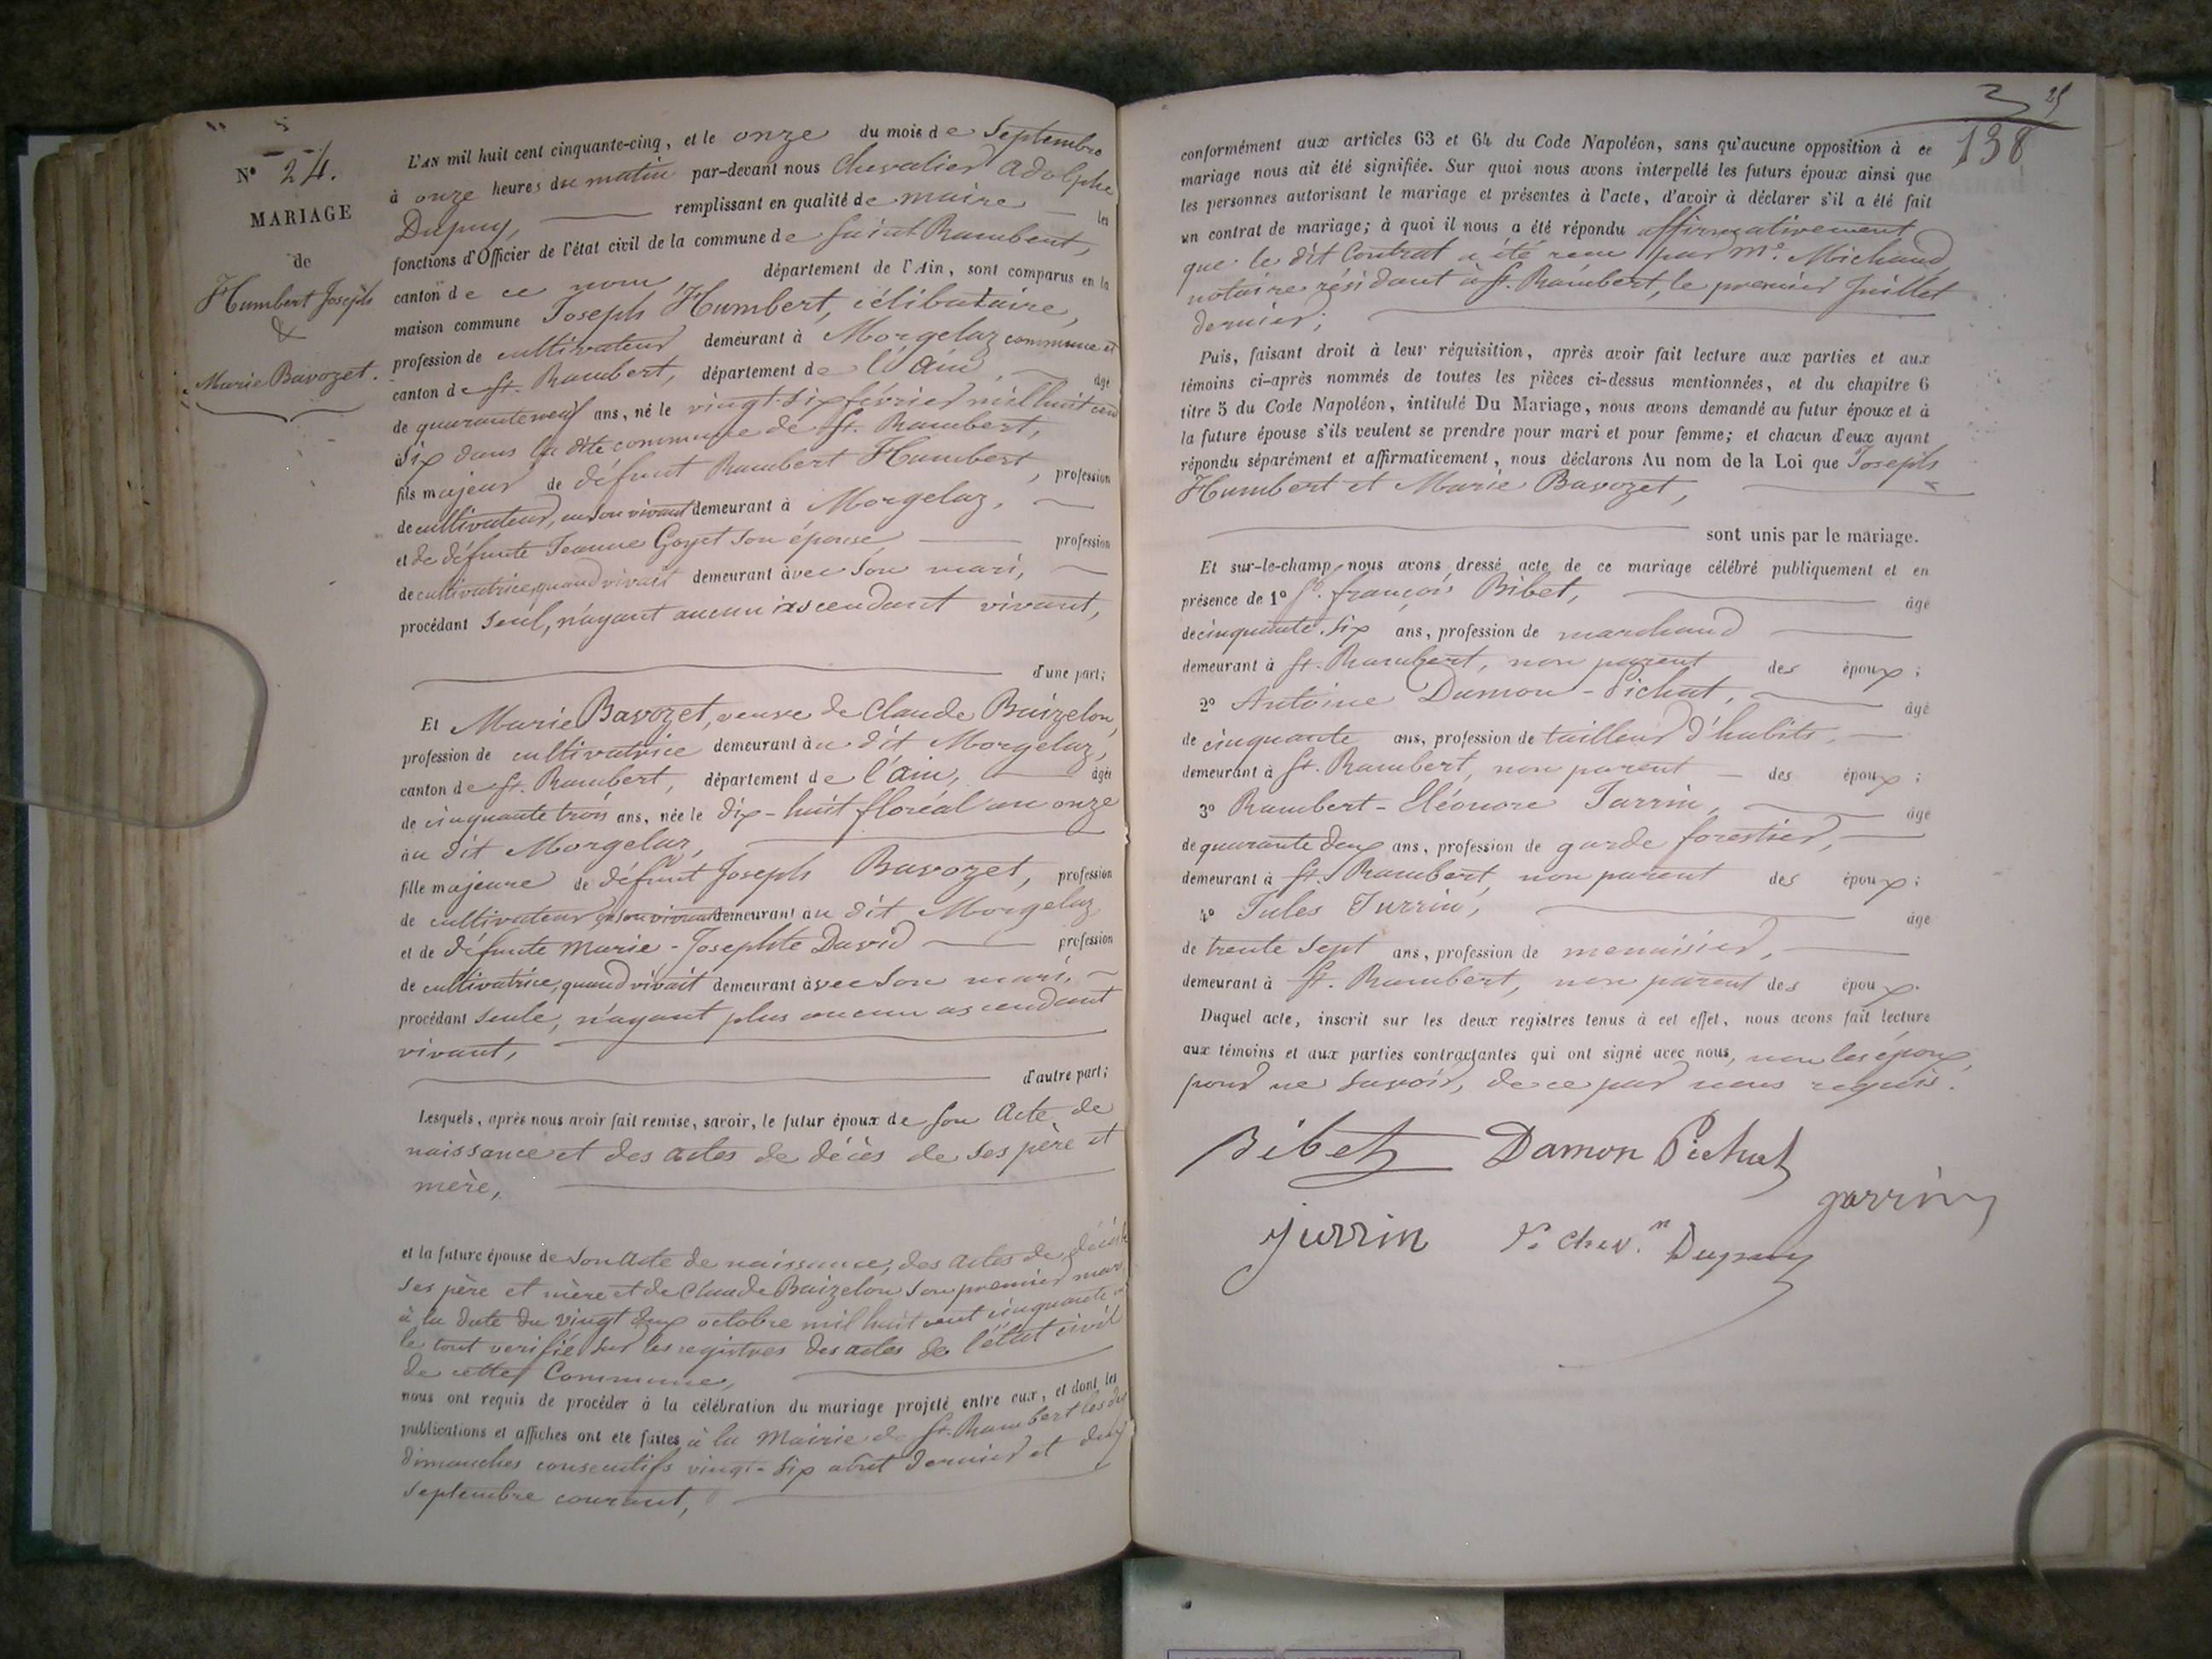 N° 24.
MARIAGE
de
Humbert Joseph
&
Marie Bavozet.
L'AN mil huit cent cinquante-cinq, et le onze du mois de Septembre
à onze heures du matin par-devant nous Chevalier Adolphe
Dupuy, remplissant en qualité de maire les
fonctions d'Officier de l'état civil de la commune de Saint Rambert,
canton de ce nom, département de l'Ain, sont comparus en la
maison commune Joseph Humbert, célibataire,
profession de cultivateur demeurant à Morgelaz commune et
canton de St. Rambert, département de l'Ain, âgé
de quarante neuf ans, né le vingt-six février mil huit cent
six dans la dite commune de St. Rambert,
fils majeur de défunt Rambert Humbert, profession
de cultivateur, en son vivant demeurant à Morgelaz,
et de défunte Jeanne Goyet son épouse profession
de cultivatrice, quand vivait demeurant avec son mari,
procédant seul, n'ayant aucun ascendant vivant,
d'une part;
Et Marie Bavozet, veuve de Claude Baizelon,
profession de cultivatrice demeurant au dit Morgelaz,
canton de St. Rambert, département de l'Ain, âgée
de cinquante trois ans, née le dix-huit floréal an onze
au dit Morgelaz,
fille majeure de défunt Joseph Bavozet, profession
de cultivateur, en son vivant demeurant au dit Morgelaz
et de défunte Marie-Josephte David profession
de cultivatrice, quand vivait demeurant avec son mari,
procédant seule, n'ayant plus aucun ascendant
vivant,
d'autre part;
Lesquels, après nous avoir fait remise, savoir, le futur époux de son Acte de
naissance et des actes de décès de ses père et
mère,
et la future épouse de son acte de naissance, des actes de décès de
ses père et mère et de Claude Baizelon son premier mari
à la date du vingt deux octobre mil huit cent cinquante
le tout verifié sur les registres des actes de l'état civil
de cette Commune,
nous ont requis de procéder à la célébration du mariage projeté entre eux, et dont les
publications et affiches ont été faites à la Mairie de St. Rambert les deux
dimanches consecutifs vingt-six août dernier et deux
septembre courant,
25
138
conformément aux articles 63 et 64 du Code Napoléon, sans qu'aucune opposition à ce
mariage nous ait été signifiée. Sur quoi nous avons interpellé les futurs époux ainsi que
les personnes autorisant le mariage et présentes à l'acte, d'avoir à déclarer s'il a été fait
un contrat de mariage; à quoi il nous a été répondu affirmativement
que le dit Contrat a été recu par Me. Michaud
notaire résidant à St. Rambert, le premier Juillet
dernier;
Puis, faisant droit à leur réquisition, après avoir fait lecture aux parties et aux
témoins ci-après nommés de toutes les pièces ci-dessus mentionnées, et du chapitre 6
titre 5 du Code Napoléon, intitulé Du Mariage, nous avons demandé au futur époux et à
la future épouse s'ils veulent se prendre pour mari et pour femme; et chacun d'eux ayant
répondu séparément et affirmativement, nous déclarons Au nom de la Loi que Joseph
Humbert et Marie Bavozet,
sont unis par le mariage.
Et sur-le-champ nous avons dressé acte de ce mariage célébré publiquement et en
présence de 1° Sr. françois Bibet, âgé
de cinquante-six ans, profession de marchand
demeurant à St. Rambert, non parent des époux;
2° Antoine Damon-Pichat, âgé
de cinquante ans, profession de tailleur d'habits,
demeurant à St. Rambert, non parent des époux;
3° Rambert-Eléonore Jarrin, âgé
de quarante deux ans, profession de garde forestier,
demeurant à St. Rambert, non parent des époux;
4° Jules Jurrin, âgé
de trente sept ans, profession de menuisier,
demeurant à St. Rambert, non parent des époux.
Duquel acte, inscrit sur les deux registres tenus à cet effet, nous avons fait lecture
aux témoins et aux parties contractantes qui ont signé avec nous, non les époux
pour ne savoir, de ce par nous requis.
Bibet Damon Pichat
jarrin
jurrin Chev. Dupuy